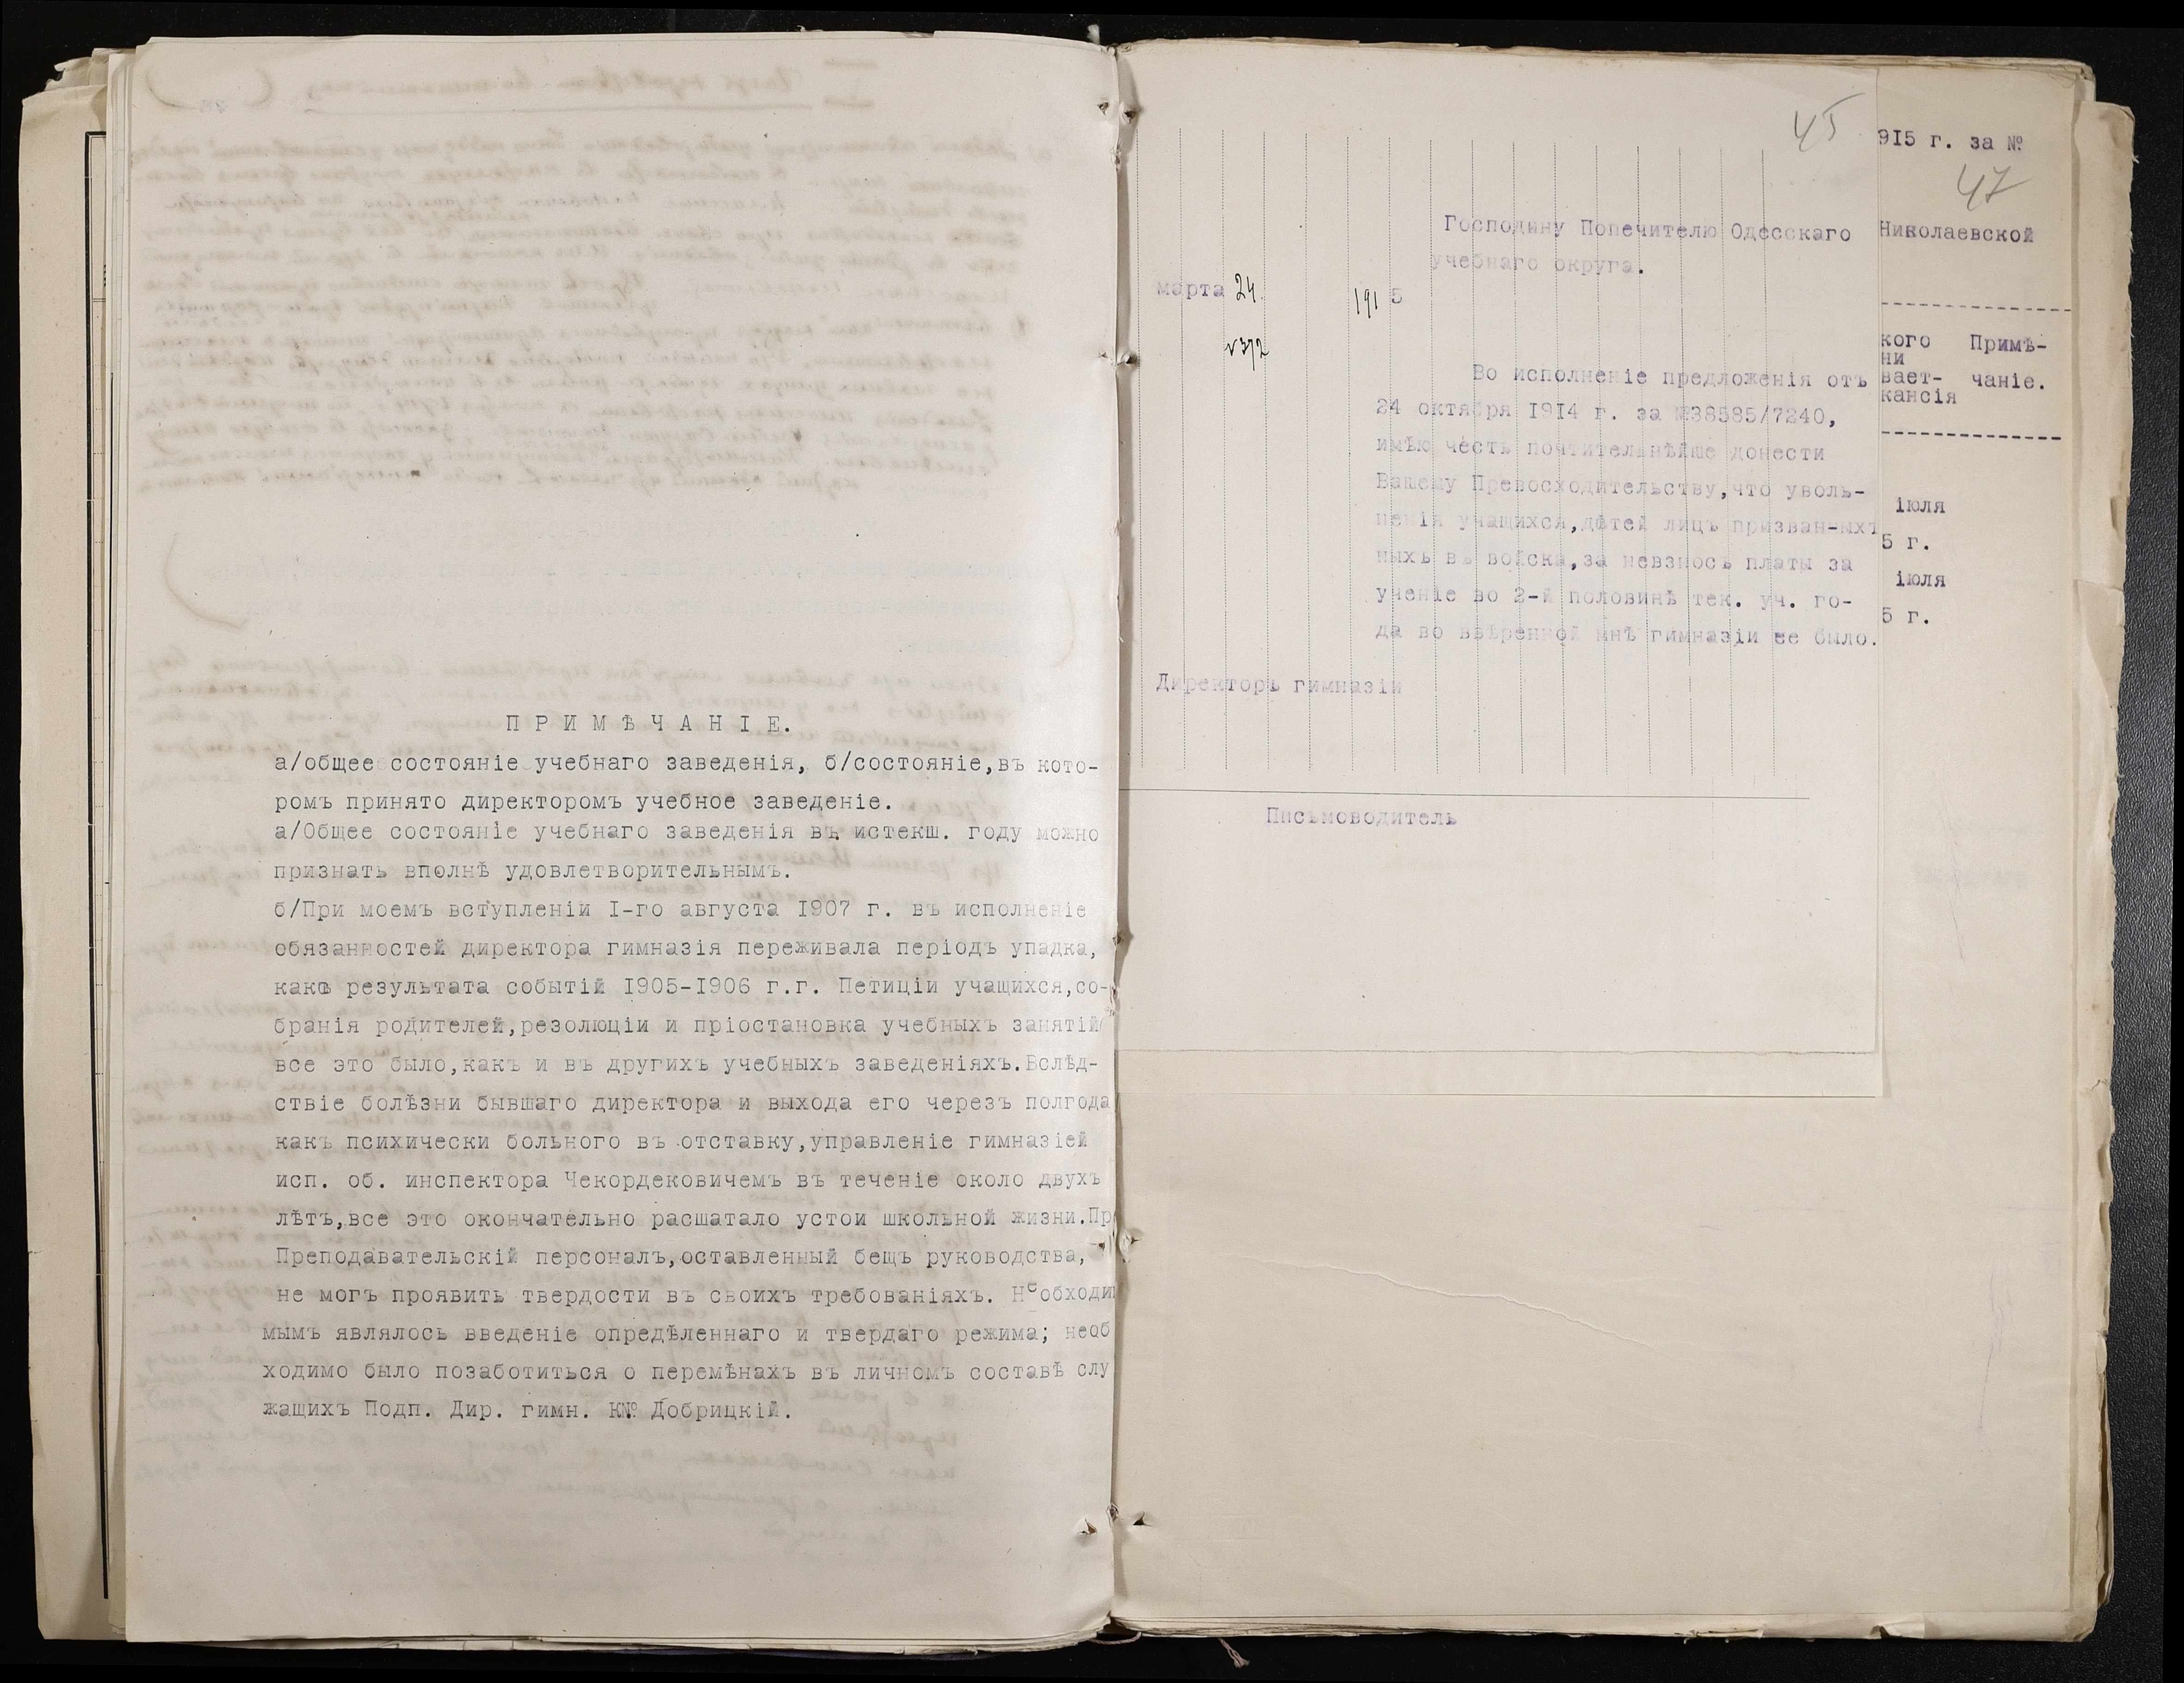 П Р И М Ѣ Ч А Н І Е.
а/общее состояніе учебнаго заведенія, б/состояніе,въ кото-
ромъ принято директоромъ учебное заведеніе.
а/Общее состояніе учебнаго заведенія въ истекш. году можно
признать вполнѣ удовлетворительнымъ.
б/При моемъ вступленіи I-го августа I907 г. въ исполненіе
обязанностей директора гимназія переживала періодъ упадка,
какъ результата событій I905-I906 г.г. Петиціи учащихся,со-
бранія родителей,резолюціи и пріостановка учебныхъ занятій
все это было,какъ и въ другихъ учебныхъ заведеніяхъ.Вслѣд-
ствіе болѣзни бывшаго директора и выхода его черезъ полгода
какъ психически больного въ отставку,управленіе гимназіей
исп. об. инспектора Чекордековичемъ въ теченіе около двухъ
лѣтъ,все это окончательно расшатало устои школьной жизни.Пр
Преподавательскій персоналъ,оставленный бещъ руководства,
не могъ проявить твердости въ своихъ требованіяхъ. Необходи
мымъ являлось введеніе опредѣленнаго и твердаго режима; необ
ходимо было позаботиться о перемѣнахъ въ личномъ составѣ слу
жащихъ Подп. Дир. гимн. К№ Добрицкій.
45
Господину Попечителю Одесскаго
учебнаго округа.
марта 24. 191 5
№372
Во исполненіе предложенія отъ
24 октября I9I4 г. за №38585/7240,
имѣю честь почтительнѣйше донести
Вашему Превосходительству,что уволь-
ненія учащихся,дѣтей лицъ призван-ыхъ
ныхъ въ войска,за невзносъ платы за
ученіе во 2-й половинѣ тек. уч. го-
да во ввѣренной мнѣ гимназіи не было.
Директоръ гимназіи
Письмоводитель
9I5 г. за №
47
Николаевской
кого Примѣ-
ни
вает- чаніе.
кансія
іюля
5 г.
іюля
5 г.